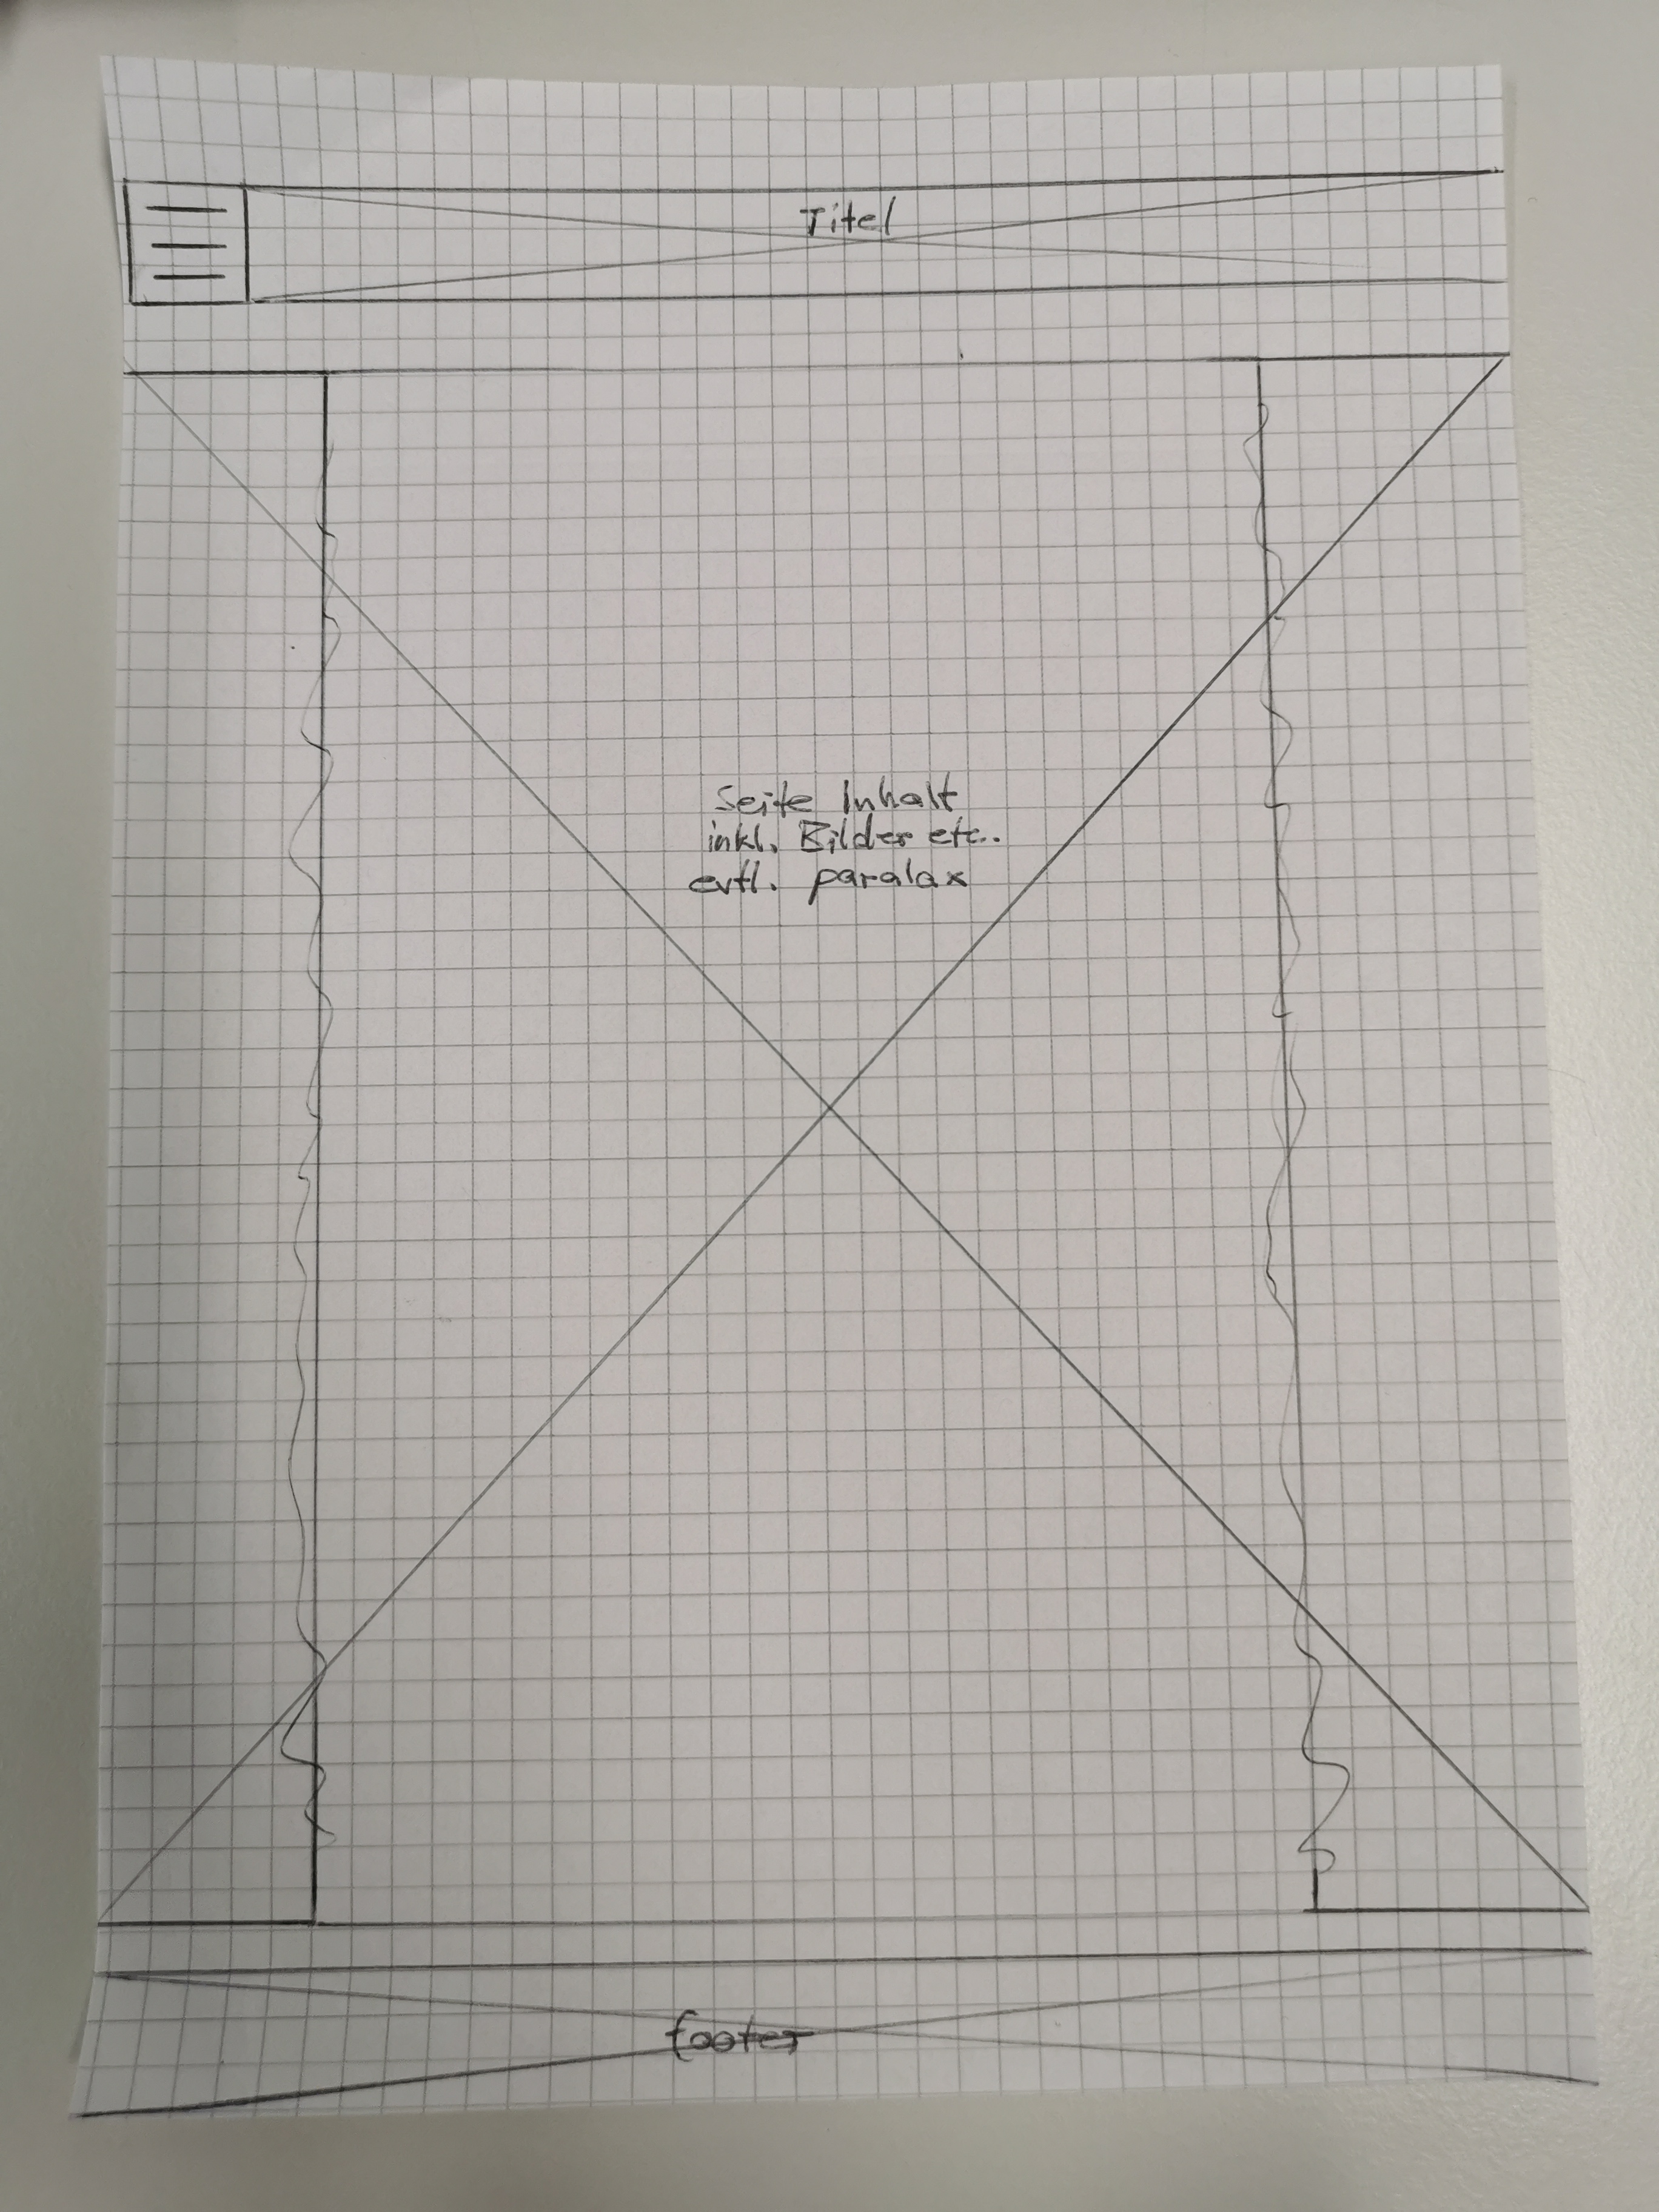 Titel
Seite Inhalt
inkl. Bilder etc..
evtl. paralax
footer